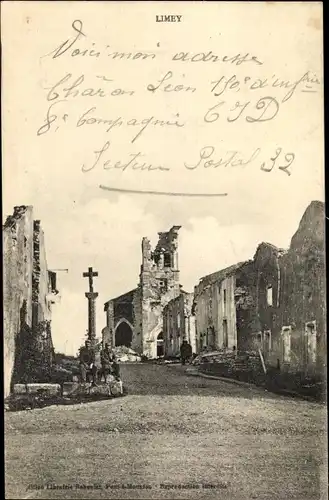 LIMEY
Voici mon adresse
Charon Léon 156e d'infrie
8e Compagnie CID
Secteur Postal 32
Librairie Pont-à-Mousson. - Reproduction interdite